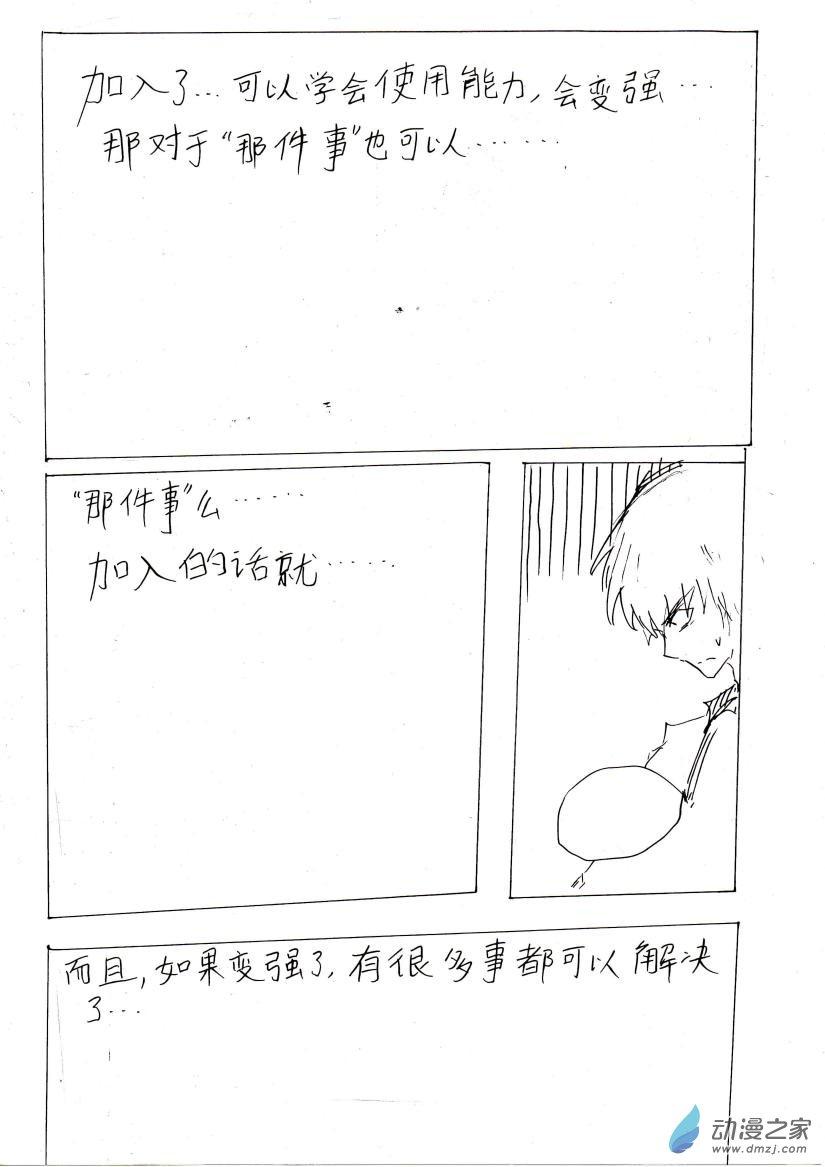 加入了…可以学会使用能力,会变强…
那对于“那件事”也可以……
“那件事”么……
加入的话就……
而且,如果变强了,有很多事都可以解决
了…
动漫之家
www.dmzj.com